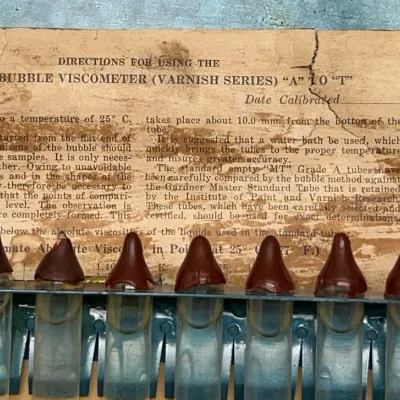 DIRECTIONS FOR USING THE
BUBBLE VISCOMETER (VARNISH SERIES) "A" TO "T"
Date Calibrated
to a temperature of 25° C.
started from the flat end of
meniscus of the bubble should
samples. It is only neces-
Owing to unavoidable
and in the shapes of the
therefore be necessary to
that the points of compari-
level. The observation is
are completely formed. This
takes place about 10.0 mm. from the bottom of the
tube.
It is suggested that a water bath be used, which
quickly brings the tubes to the proper temperature
and insures greater accuracy.
The standard empty "MT" Grade A tubes have
been carefully compared by the bubble method against
the Gardner Master Standard Tube that is retained
by the Institute of Paint and Varnish Research.
These tubes, which have been carefully selected and
certified, should be used for exact determinations.
below the absolute viscosities of the liquids used in the standard tube
Absolute in at 25° F.)